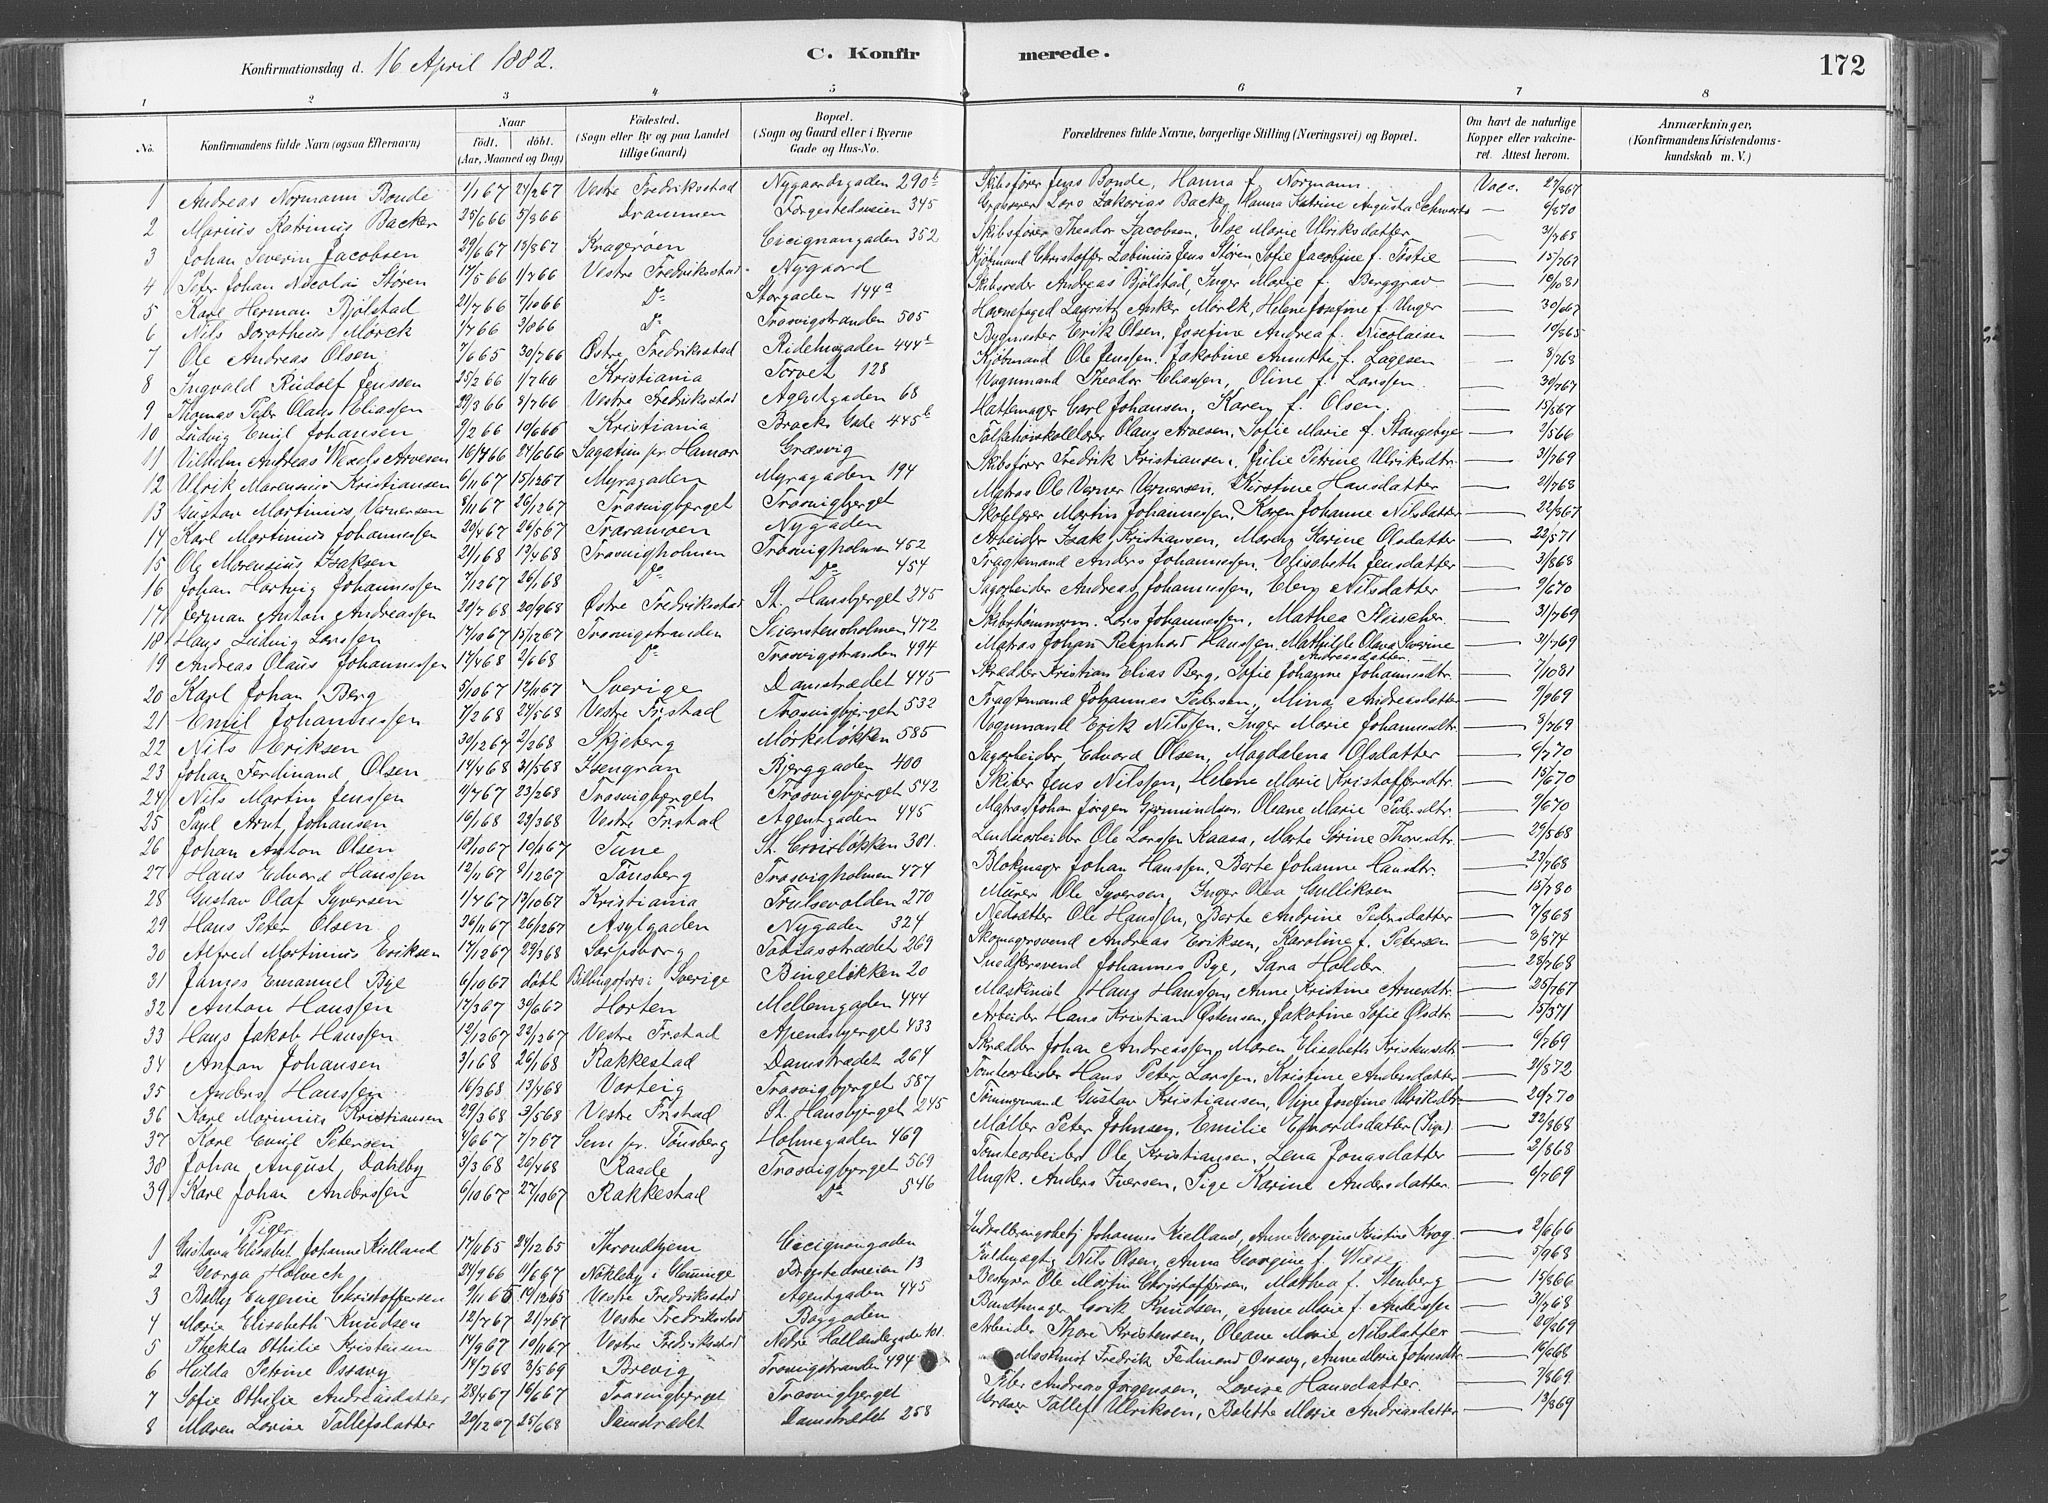 Konfirmationsdag d. 16 April 1882. C. Konfirmerede. 172
1 2 3 4 5 6 7 8
No. Konfirmandens fulde Navn (ogsaa Efternavn) Naar født. døbt. (Aar, Maaned og Dag) Fødested. (Sogn eller By og paa Landet tillige Gaard) Bopæl. (Sogn og Gaard eller i Byerne Gade og Hus-No. Forældrenes fulde Navne, borgerlige Stilling (Næringsvei) og Bopæl. Om havt de naturlige Kopper eller vakcineret. Attest herom. Anmærkninger, (Konfirmandens Kristendomskundskab m. V.)
1 Andreas Normann Bonde 1/1 67 24/2 67 Vestre Fredriksstad Nygaardsgaden 290b Skibsfører Jens Bonde, Hanna f. Normann Vacc. 27/8 67
2 Marius Katrinus Backer 25/6 66 5/8 66 Drammen Færgestedsveien 345 Lars Zakarias Backer, Hanna Katrine Augusta Schwartz — 6/8 70
3 Johan Severin Jacobsen 29/6 67 13/8 67 Kragerøen Cicignongaden 352 Skibsfører Theodor Jacobsen, Else Marie Ulriksdatter — 3/7 68
4 Peter Johan Nicolai Støren 17/5 66 1/7 66 Vestre Fredriksstad Nygaard Kjøbmand Christoffer Zabinius Jens Støren, Sofie Jacobine f. Tostie — 15/7 67
5 Karl Herman Bjølstad 21/7 66 7/10 66 Do Storgaden 144a Skibsreder Andreas Bjølstad, Inger Marie f. Berggrav — 19/10 81
6 Nils Dorotheus Mørck 1/7 66 3/0 66 Do Trosvigstranden 505 Havnefoged Lauritz Anker Mørck, Helene Josefine f. Unger — 30/6 67
7 Ole Andreas Olsen 7/6 65 30/7 66 Østre Fredriksstad Ridehusgaden 444b Bygmester Erik Olsen, Josefine Andrea f. Nicolaisen — 19/8 65
8 Ingvald Rudolf Jenssen 25/2 66 1/7 66 Kristiania Torvet 128 Kjøbmand Ole Jenssen, Jakobine Annette f. Lagesen — 8/7 68
9 Thomas Peter Olaus Eliassen 29/3 66 8/7 66 Vestre Fredriksstad Agentgaden 68 Vognmand Theodor Eliassen, Oline f. Larssen — 30/7 67
10 Ludvig Emil Johansen 9/2 66 19/6 66 Kristiania Brocks Gade 445b Hattemager Carl Johansen, Karen f. Olsen — 15/8 67
11 Vilhelm Andreas Wexels Arvesen 16/4 66 24/6 66 Sagatun pr Hamar Græsvig Olaus Arvesen, Sofie Marie f. Stangebye — 2/5 66
12 Ulrik Marensius Kristiansen 9/11 67 15/12 67 Myragaden Myragaden 194 Skibsfører Fredrik Kristiansen, Julie Petrine Ulriksdtr. — 31/7 69
13 Gustav Martinius Vernersen 8/11 67 26/12 67 Trosvigberget Trosvigberget Matros Ole Verner Vernersen, Kirstine Hansdatter — 21/7 68
14 Karl Martinius Johannessen 20/4 67 26/5 67 Traramoen Nygaden Skolelærer Martin Johannessen, Karen Johanne Nilsdatter — 22/3 67
15 Ole Marensius Isaksen 21/1 68 13/4 68 Trosvigholmen Trosvigholmen 452 Arbeider Isak Kristiansen, Maren Karine Olsdatter — 22/5 71
16 Johan Hartvig Johannessen 7/12 67 26/1 68 Do Do 454 Fragtemand Anders Johannessen, Elisabeth Jensdatter — 3/8 68
17 Herman Anton Andreassen 20/7 68 20/9 68 Østre Fredriksstad St. Hansbjerget 245 Sagarbeider Andreas Johannessen, Elen Nilsdatter — 9/6 70
18 Hans Ludvig Larssen 17/10 67 15/12 67 Trosvigstranden Seierstensholmen 472 Skibstømmerm. Lars Johannessen, Mathea Fleischer — 31/7 69
19 Andreas Olaus Johannessen 17/4 68 2/6 68 Do Trosvigstranden 494 Matros Johan Reinhard Hanssen, Mathilde Olava Severine Andreasdatter — 3/7 69
20 Karl Johan Berg 5/10 67 17/11 67 Sverige Damstrædet 445 Skrædder Kristian Elias Berg, Sofie Johanne Johannesdtr. — 7/10 81
21 Emil Johannessen 7/2 68 24/5 68 Vestre Fr.stad Trosvigbjerget 532 Fragtemand Johannes Pedersen, Mina Andreasdatter — 9/9 69
22 Nils Eriksen 30/12 67 2/2 68 Skjeberg Mørkeløkken 585 Vognmand Erik Nilssen, Inger Marie Johannesdtr. — 3/7 69
23 Johan Ferdinand Olsen 14/4 68 31/5 68 Isengran Bjerggaden 400 Sagarbeider Edvard Olsen, Magdalena Olsdatter — 6/7 70
24 Nils Martin Jenssen 11/7 67 23/2 68 Trosvigberget Trosvigbjerget 542 Skiber Jens Nilssen, Helene Marie Kristoffersdtr. — 15/6 70
25 Paul Arnt Johansen 16/1 68 29/3 68 Vestre Fr.stad Agentgaden 445 Matros Johan Jørgen Gjermundsen, Oleane Marie Pedersdtr. — 9/6 70
26 Johan Anton Olsen 19/10 67 10/11 67 Tune St. Croixløkken 301. Landsarbeider Ole Larssen Raasa, Marte Sørine Thoresdtr. — 29/5 68
27 Hans Edvard Hanssen 12/11 67 8/12 67 Tønsberg Trosvigholmen 474 Blokmager Johan Hanssen, Berte Johanne Hansdtr. — 23/7 68
28 Gustav Olaf Syversen 1/4 67 13/10 67 Kristiania Trulsevolden 270 Murer Ole Syversen, Inger Olea Gulliksen — 15/7 80
29 Hans Peter Olsen 30/11 67 26/12 67 Asylgaden Nygaden 324 Nedsætter Ole Hanssen, Berte Andrine Pedersdatter — 7/8 68
30 Alfred Martinius Eriksen 17/12 67 29/3 68 Sarpsborg Tobiasstrædet 269 Skomagersvend Andreas Eriksen, Karoline f. Petersen — 8/8 74
31 James Emanuel Bye 6/10 67 døbt Billingsfors i Sverige Bingeløkken 20 Snedkersvend Johannes Bye, Sara Holder — 28/7 68
32 Anton Hanssen 17/3 67 30/6 67 Horten Mellemgaden 444 Maskinist Hans Hanssen, Anne Kristine Arnesdtr. — 25/7 67
33 Hans Jakob Hanssen 12/12 67 22/12 67 Vestre Fr.stad Apenæsbjerget 433 Arbeider Hans Kristian Østensen, Jakobine Sofie Olsdtr. — 15/3 71
34 Anton Johansen 3/1 68 26/1 68 Rakkestad Damstrædet 264 Skrædder Johan Andreassen, Maren Elisabeth Kristensdtr. — 6/7 69
35 Anders Hanssen 16/3 68 13/4 68 Varteig Trosvigbjerget 587 Tomtearbeider Hans Peter Larssen, Kristine Andersdatter — 21/8 72
36 Karl Marinius Kristiansen 29/3 68 3/5 68 Vestre Fr.stad St. Hansbjerget 245 Tømmermand Gustav Kristiansen, Oline Josefine Ulriksdtr. — 20/7 70
37 Karl Emil Petersen 9/6 67 7/7 67 Sem pr. Tønsberg Holmegaden 469 Møller Peter Johnsen, Emilie Edvardsdatter (Pige) — 22/8 68
38 Johan August Dahlby 3/3 68 26/4 68 Raade Trosvigbjerget 569 Tomtearbeider Ole Kristiansen, Lena Jonasdatter — 2/8 68
39 Karl Johan Anderssen 6/10 67 27/10 67 Rakkestad Do 546 Ungk. Anders Iversen, Pige Karine Andersdatter — 6/7 69
Piger
1 Gustava Elisabet Johanne Kielland 17/11 65 24/12 65 Throndhjem Cicignongaden Johannes Kielland, Anne Georgine Kristine Krog — 2/6 66
2 Georga Holvech 24/9 66 11/6 67 Nøkleby i Glemminge Færgestedsveien 13 Fuldmægtig Nils Olsen, Anna Georgine f. Wiese — 5/9 68
3 Bolly Eugenie Christoffersen 9/11 65 19/12 65 Vestre Fredriksstad Agentgaden 445 Bestyrer Ole Martin Christoffersen, Mathea f. Stenberg — 15/8 66
4 Marie Elisabeth Knudsen 12/4 67 21/4 67 Vestre Fredriksstad Baggaden Bundtmager Knudsen, Anne Marie f. Anderssen — 31/7 68
5 Thekla Othilie Kristensen 14/9 67 19/11 67 Vestre Fredriksstad Nedre Hallandsgade 101. Arbeider Thore Kristensen, Oleane Marie Nilsdatter — 20/2 69
6 Hilda Petrine Ossavy 14/7 68 3/5 69 Brevig Trosvigstranden 494 Maskinist Fredrik Ferdinand Ossavy, Anne Marie Johnsdtr. — 19/6 68
7 Sofie Othilie Andreasdatter 28/4 67 16/6 67 Trosvigberget Trosvigbjerget Andreas Jørgensen, Lovise Hansdatter — 7/8 69
8 Maren Lovise Tollefsdatter 20/12 67 25/6 68 Damstrædet Damstrædet 258 Tollef Ulriksen, Bolette Marie Andreasdatter — 13/8 69